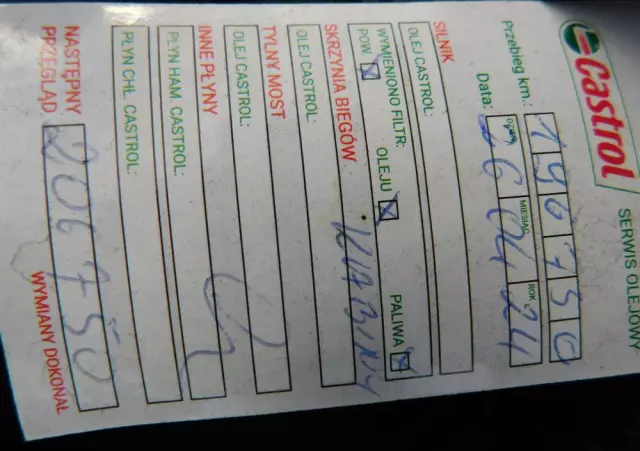 Castrol
SERWIS OLEJOWY
Przebieg km.: 196750
Data: 26 MIESIĄC 04 ROK 24
SILNIK
OLEJ CASTROL:
WYMIENIONO FILTR:
POW. OLEJU PALIWA
SKRZYNIA BIEGÓW
OLEJ CASTROL:
TYLNY MOST
OLEJ CASTROL:
INNE PŁYNY
PŁYN HAM. CASTROL:
PŁYN CHŁ. CASTROL:
NASTĘPNY
PRZEGLĄD 206750
WYMIANY DOKONAŁ